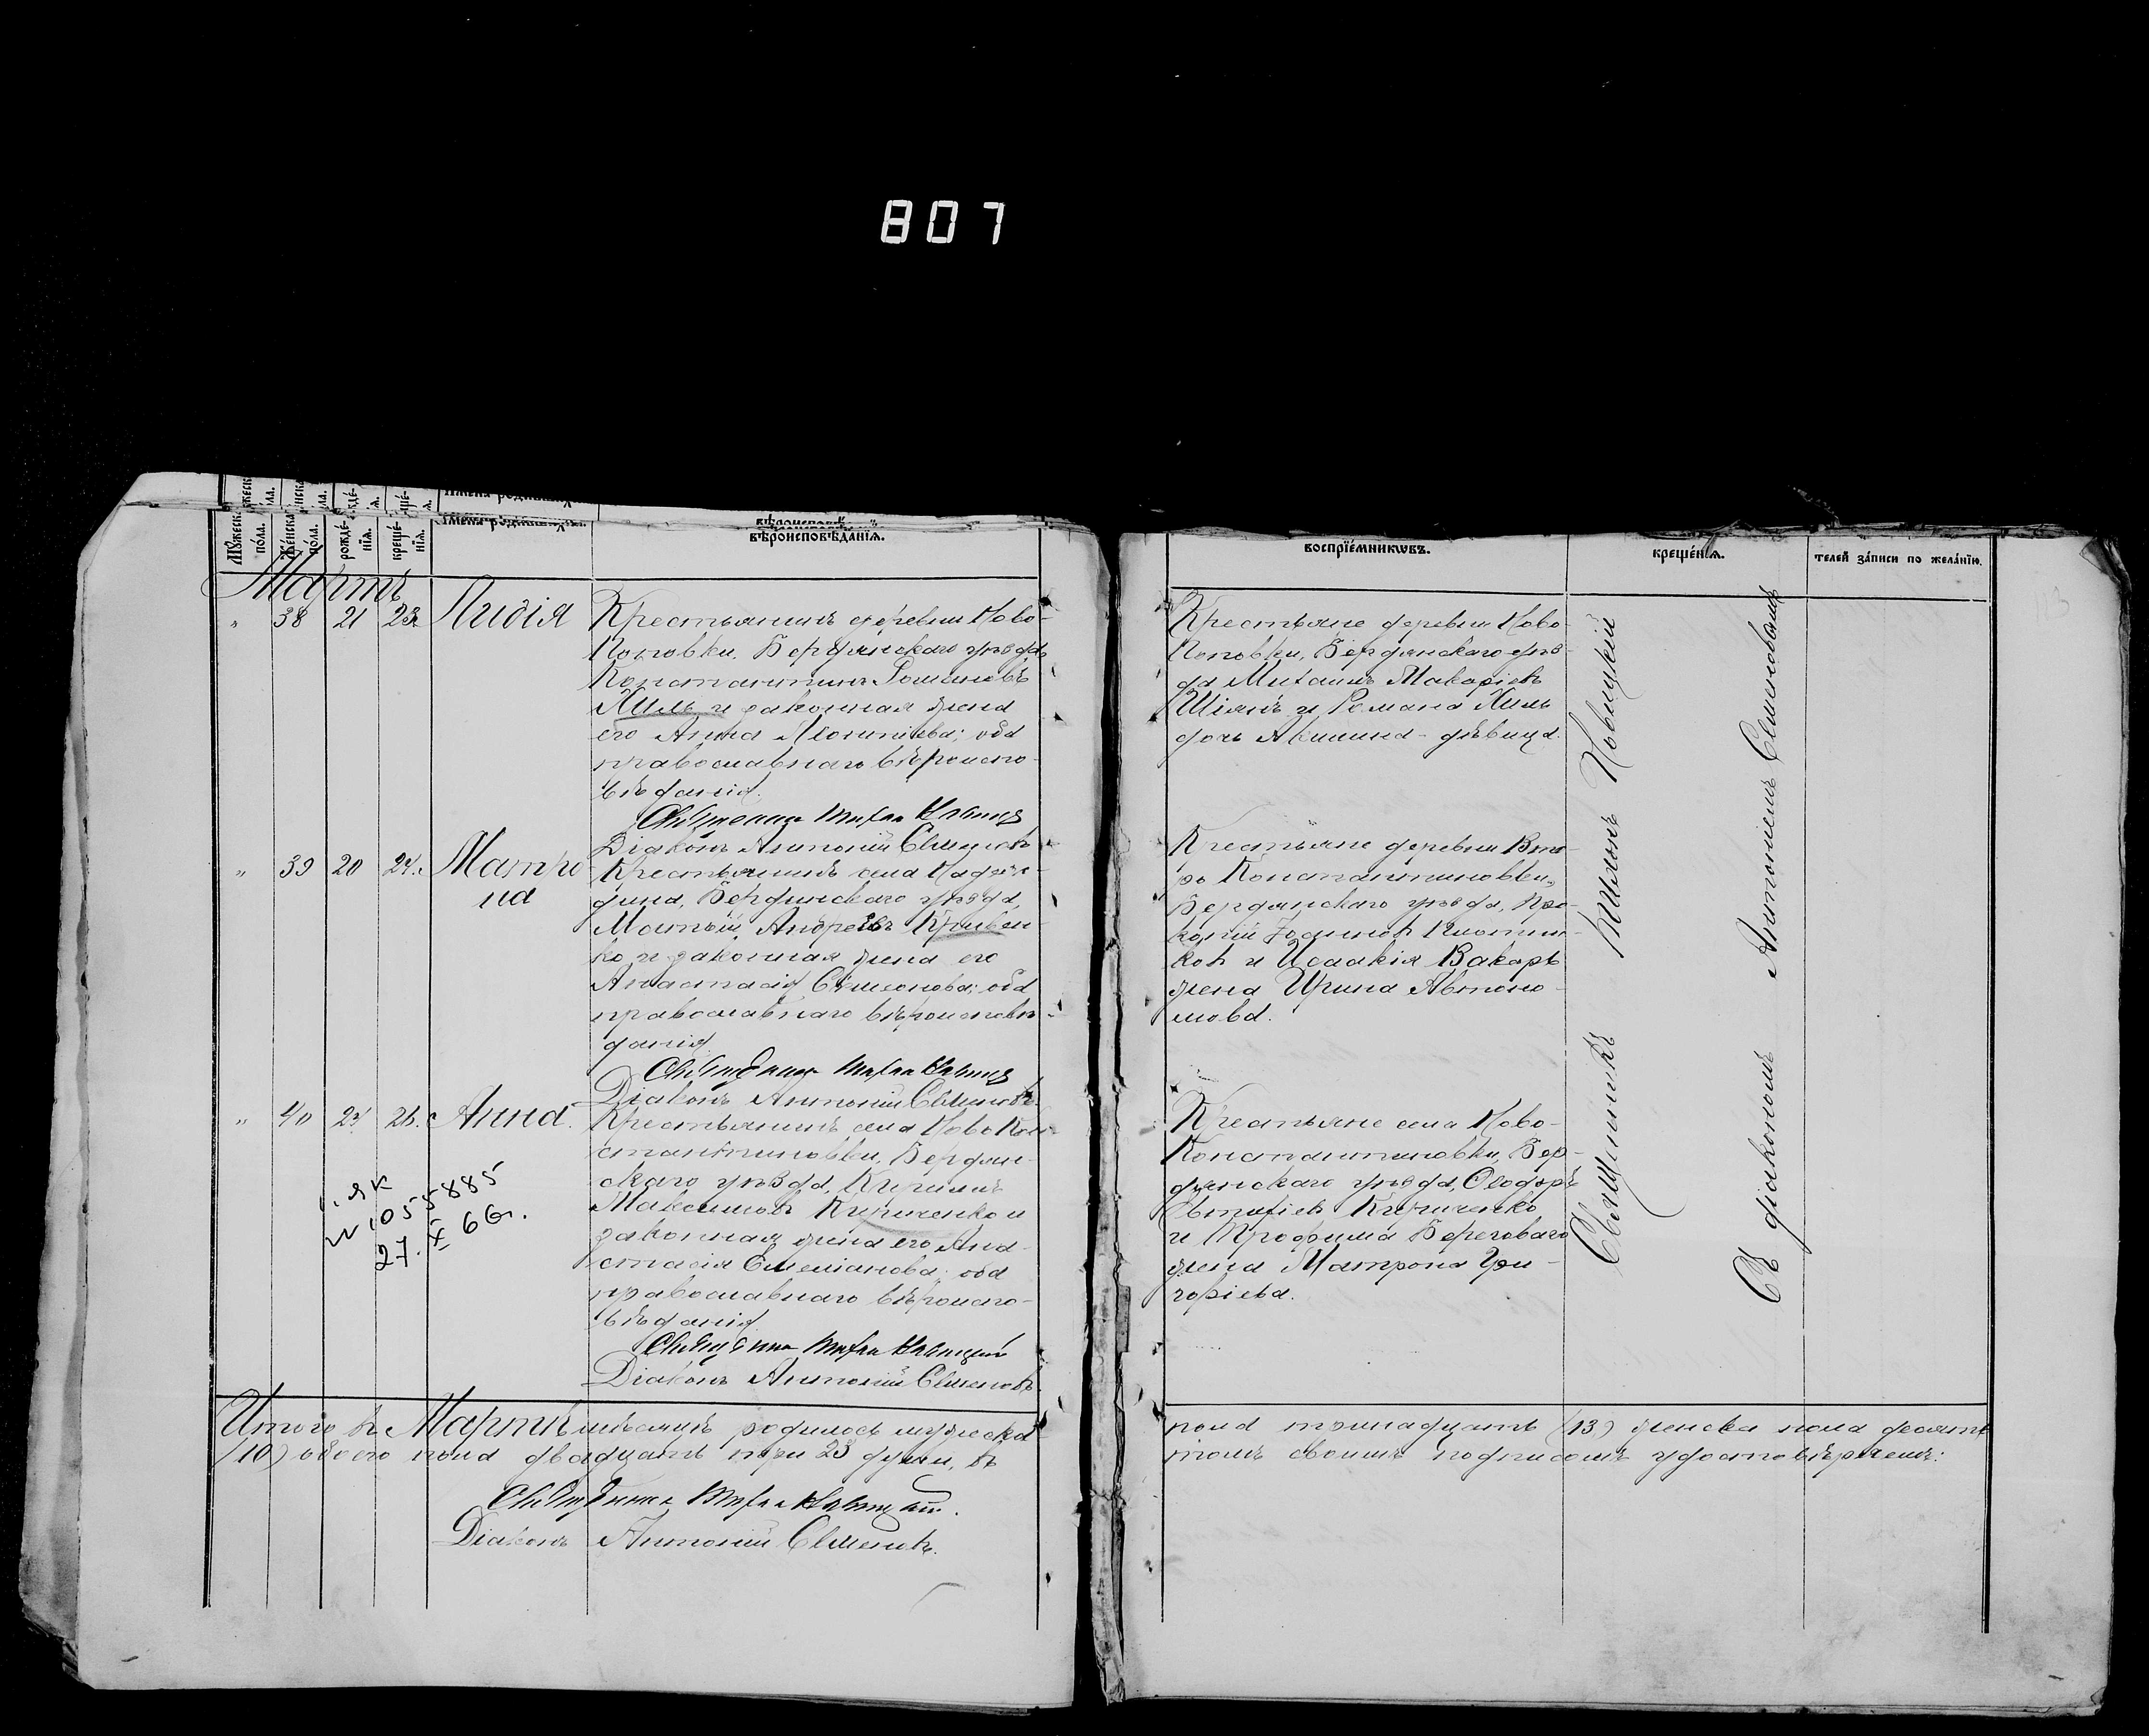 807
Мꙋжеска пола.
Женска пола.
рожде- нїѧ.
креще- нїѧ.
Имена родившихсѧ.
вѣроисповѣданїѧ.
воспрїемникѡвъ.
крещенїѧ.
телей записи по желанїю.
Мартъ
" 38 21 23. Лидія
Крестьянинъ деревни Ново-
Поповки, Бердянскаго уѣзда
Константинъ Романовъ
и законная жена
его Анна; оба
православнаго вѣроиспо-
вѣданія.
Священникъ
Діаконъ Антоній Семеновъ
" 39 20 24. Матро
на
Крестьянинъ села
Бердянскаго уѣзда,
Матѳій Андреевъ Кривен-
ко и законная жена его
Анастасія Симеонова; оба
православнаго вѣроисповѣ-
данія.
Священникъ
Діаконъ Антоній Семеновъ.
" 40 24 26. Анна.
Крестьянинъ села Ново Кон-
стантиновки, Бердян-
скаго уѣзда, Кириллъ
Максимовъ Кириченко и
законная жена его Ана-
стасія Емеліанова; оба
православнаго вѣроиспо-
вѣданія.
Священникъ
Діаконъ Антоній Семеновъ.
І. ЯК
№ 055885
27. X 66г.
Итого въ Мартѣ мѣсяцѣ родилось мужеска
(10) обоего пола двадцать три 23 души, въ
Священникъ
Діаконъ Антоній Семеновъ.
Крестьяне деревни Ново-
Поповки, Бердянскаго уѣз-
да Михаилъ Макаріевъ
и Романа
дочь Акилина - дѣвица.
Крестьяне деревни Вто-
ро Константиновки,
Бердянскаго уѣзда, Про-
копій Іоанновъ
и Исаакія Вакаръ
жена Ирина Автоно-
мова.
Крестьяне села Ново-
Константиновки, Бер-
дянскаго уѣзда, Ѳеодоръ
Евтихіевъ Кириченко
и Трофима Береговаго
жена Матрона Гри-
горіева.
Священникъ Новицкій
Съ діакономъ Антоніемъ Семеновымъ
пола тринадцать (13) женска пола десять
томъ своимъ подписомъ удостовѣряемъ: